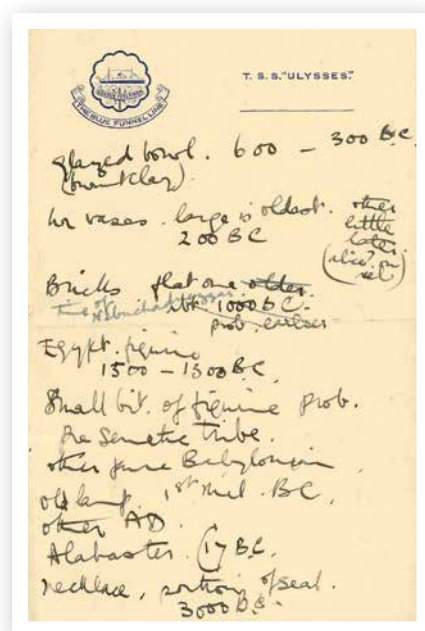 THE BLUE FUNNEL LINE
T. S. S. "ULYSSES."
glazed bowl. 600 – 300 B.C.
(burnt clay)
two vases. large is oldest. other
200 BC little
later.
Bricks flat one older.
time of Nebuchadnezzar abt. 1000 BC.
prob. earlier
Egypt. figurine
1500 – 1300 BC.
Small bit. of figurine prob.
Pre Semetic tribe.
other pure Babylonian.
old lamp. 1st Mil. BC.
other AD.
Alabaster. (17 B.C.
necklace, portion of seal.
3000 B.C.